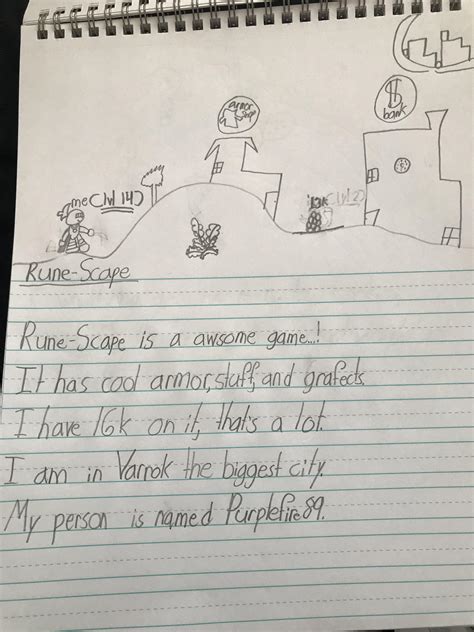 $
bank
armor
shop
me (lvl 14)
Rune-Scape
Rune-Scape is a awsome game...!
It has cool armor, stuff, and grafects.
I have 16k on it, that's a lot.
I am in Varnok the biggest city.
My person is named Purplefire89.